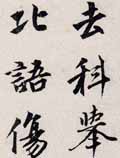 去科舉
北語傷